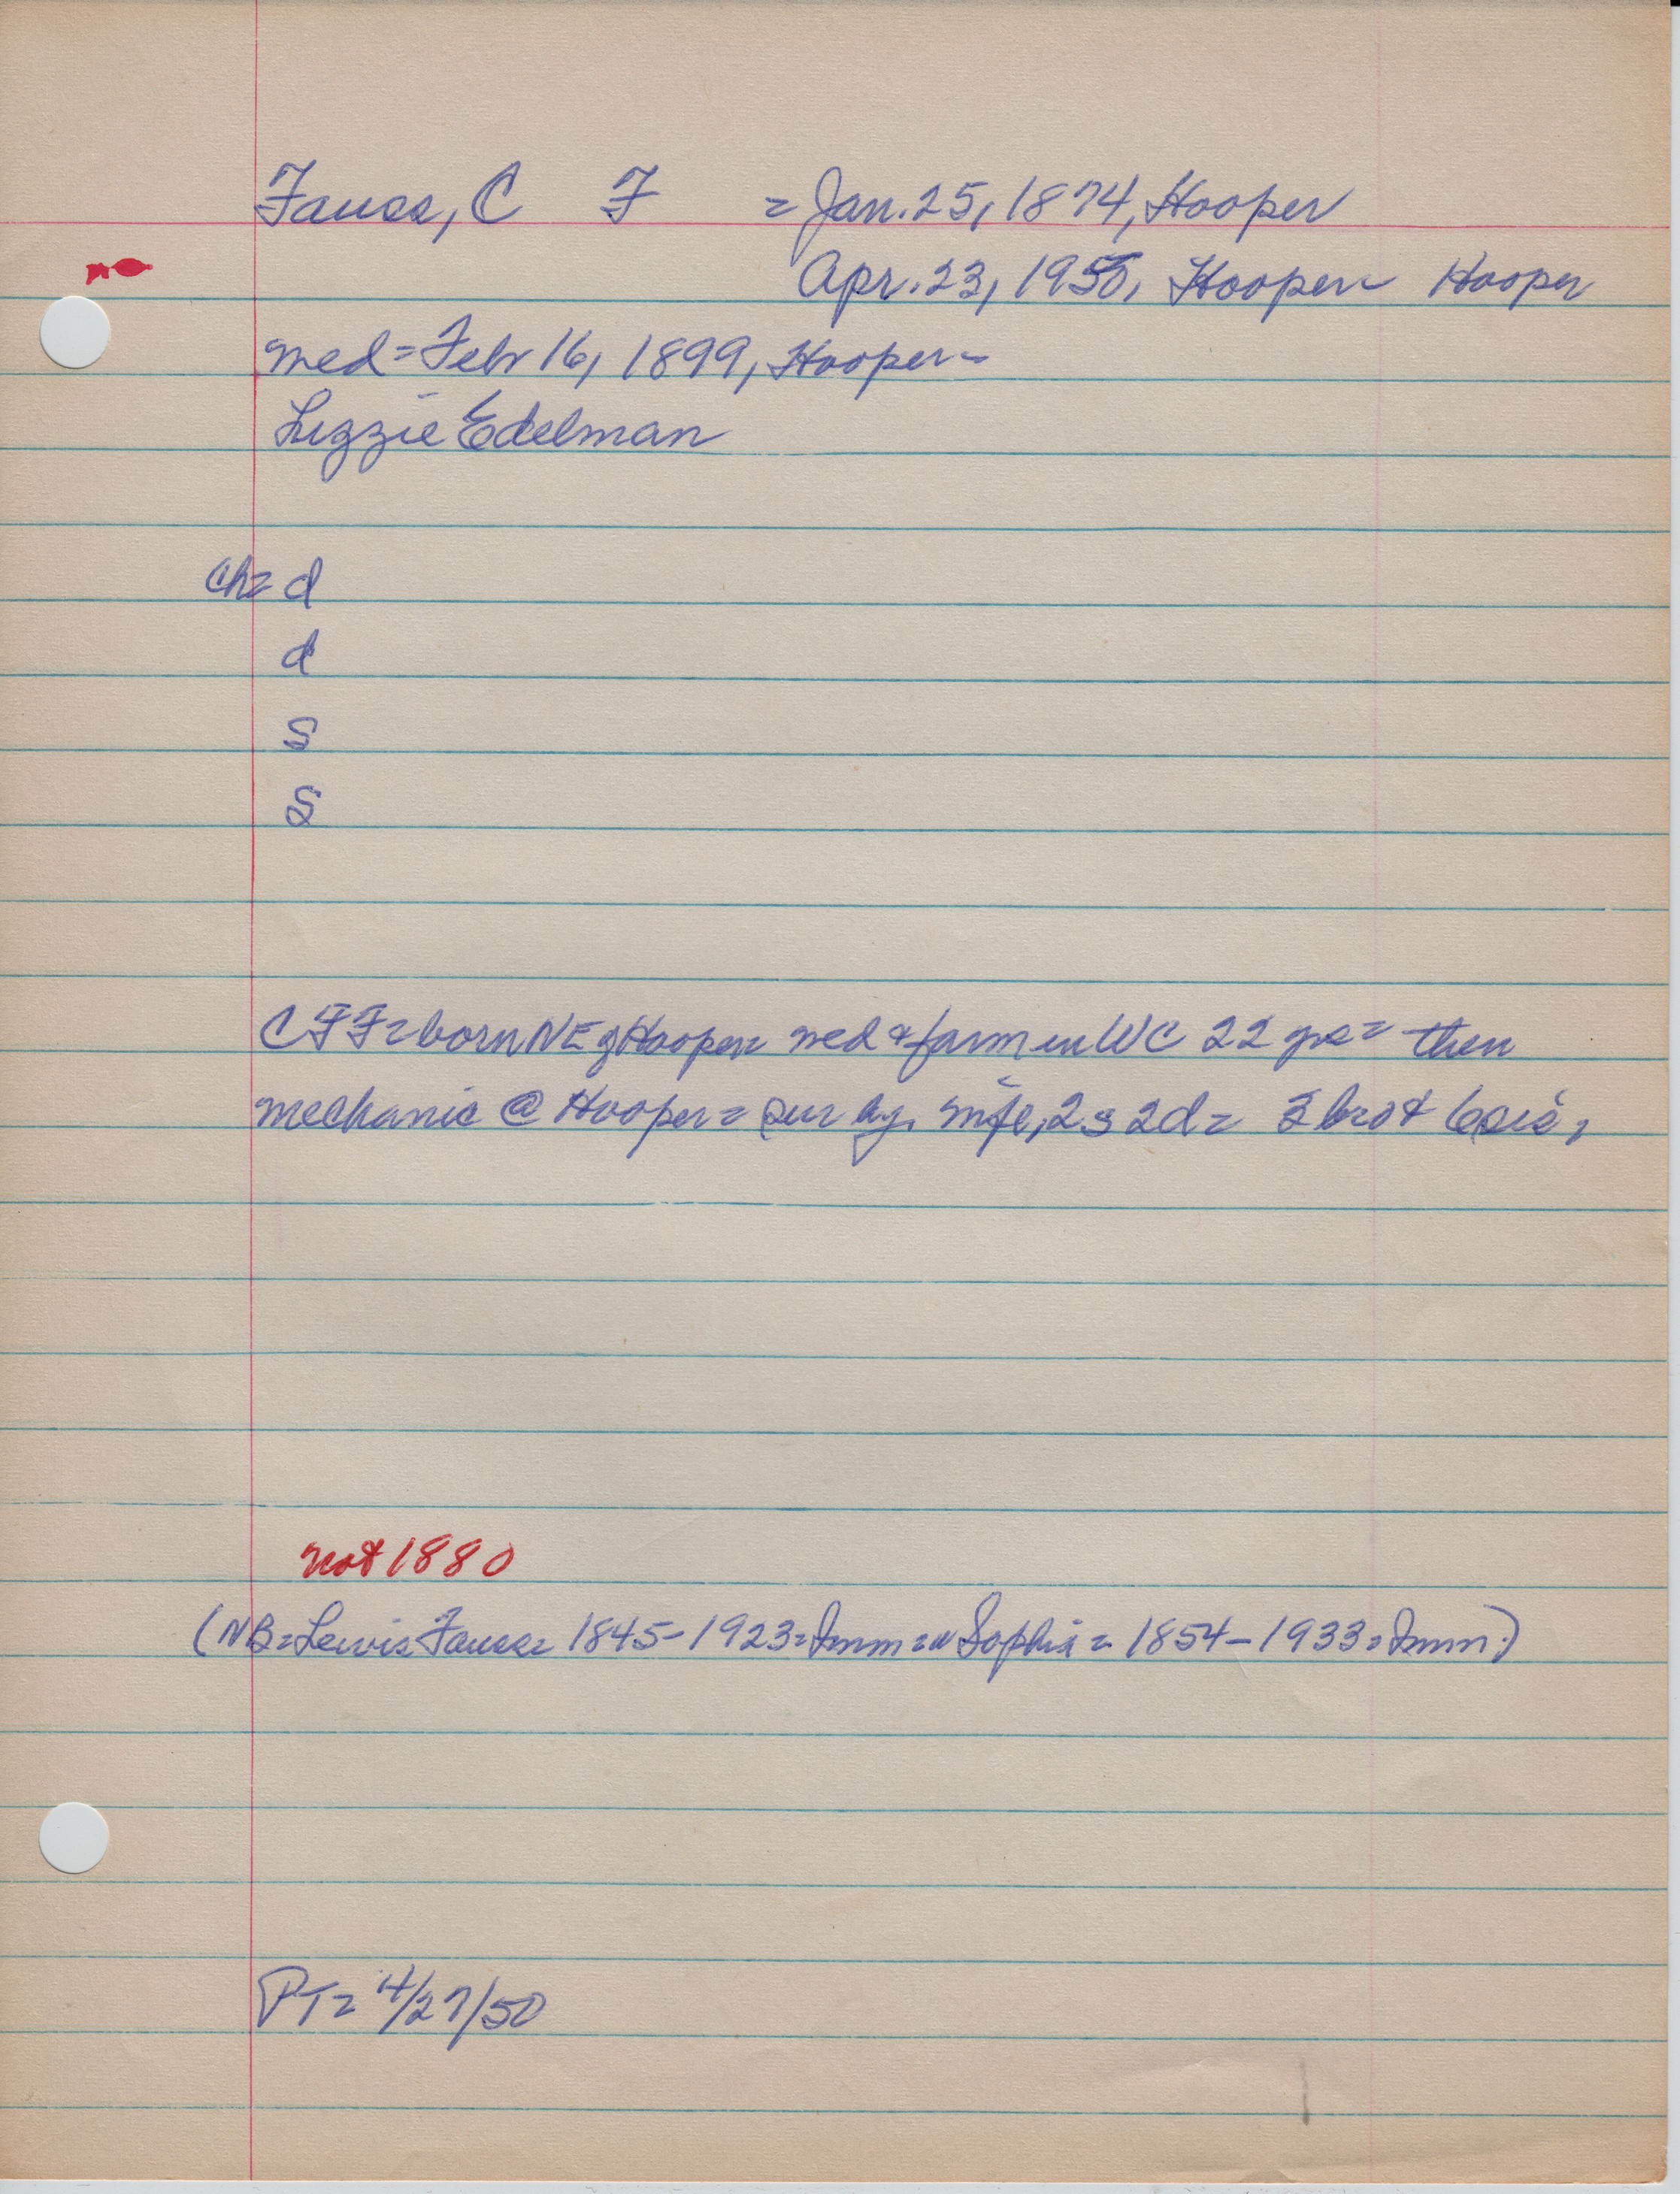 Fauss, C F = Jan. 25, 1874, Hooper
Apr. 23, 1950, Hooper = Hooper
med = Febr 16, 1899, Hooper =
Lizzie Edelman
Ch = d
d
S
S
C F F = born NE of Hooper = med & farm in WC 22 yrs = then
mechanic @ Hooper = sur by. wife, 2s 2d = 2 bro & 6 sis,
not 1880
(NB = Lewis Fauss = 1845-1923 = Imm = w Sophia = 1854-1933 = Imm.)
PT = 4/27/50